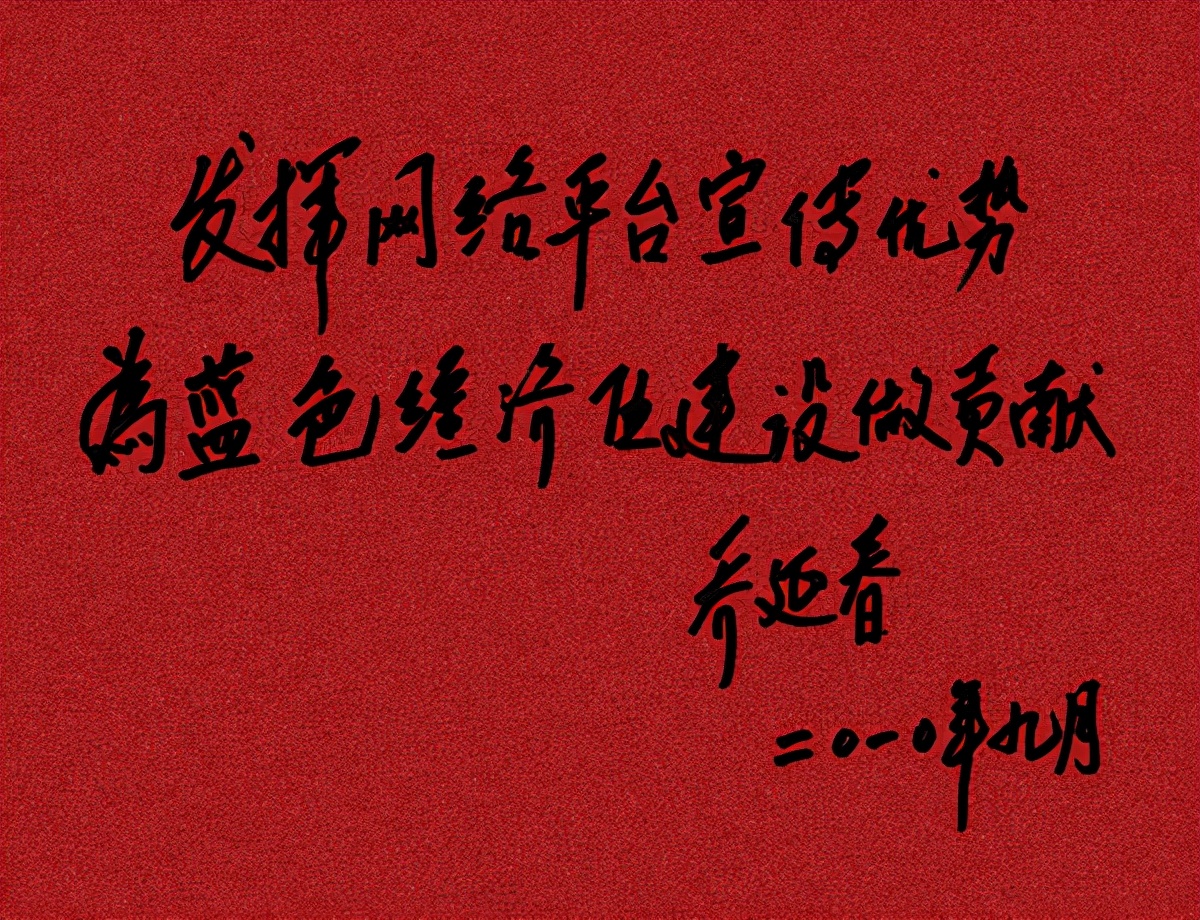 发挥网络平台宣传优势
為蓝色经济区建设做贡献
乔延春
二〇一〇年九月